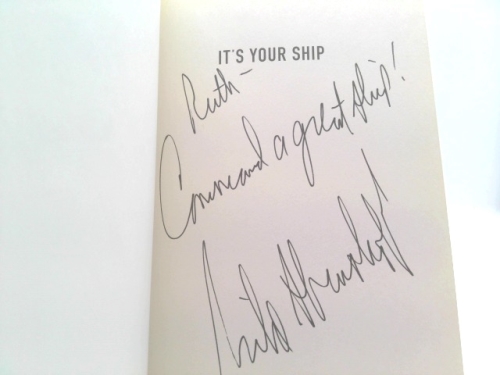 IT'S YOUR SHIP
Ruth-
Command a great ship!
Mike Abrashoff